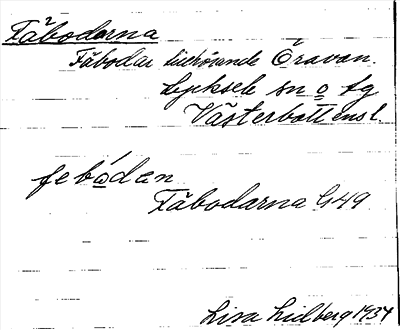 Fäbodarna
Fäbodar tillhörande Öravan.
Lycksele sn o tg
Västerbottens l.
febódan
Fäbodarna G49
Lisa Lidberg 1934